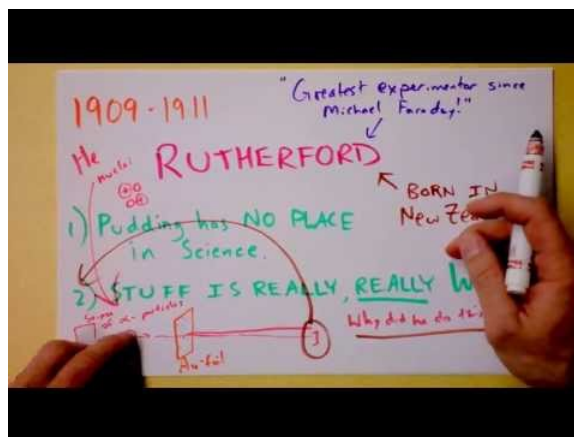 1909-1911
"Greatest experimentor since
Michael Faraday!"
He
nuclei
RUTHERFORD
BORN IN
New Zea
1) Pudding has NO PLACE
in Science.
2) STUFF IS REALLY, REALLY W
Source
of α-particles
Why did he do
Au-foil